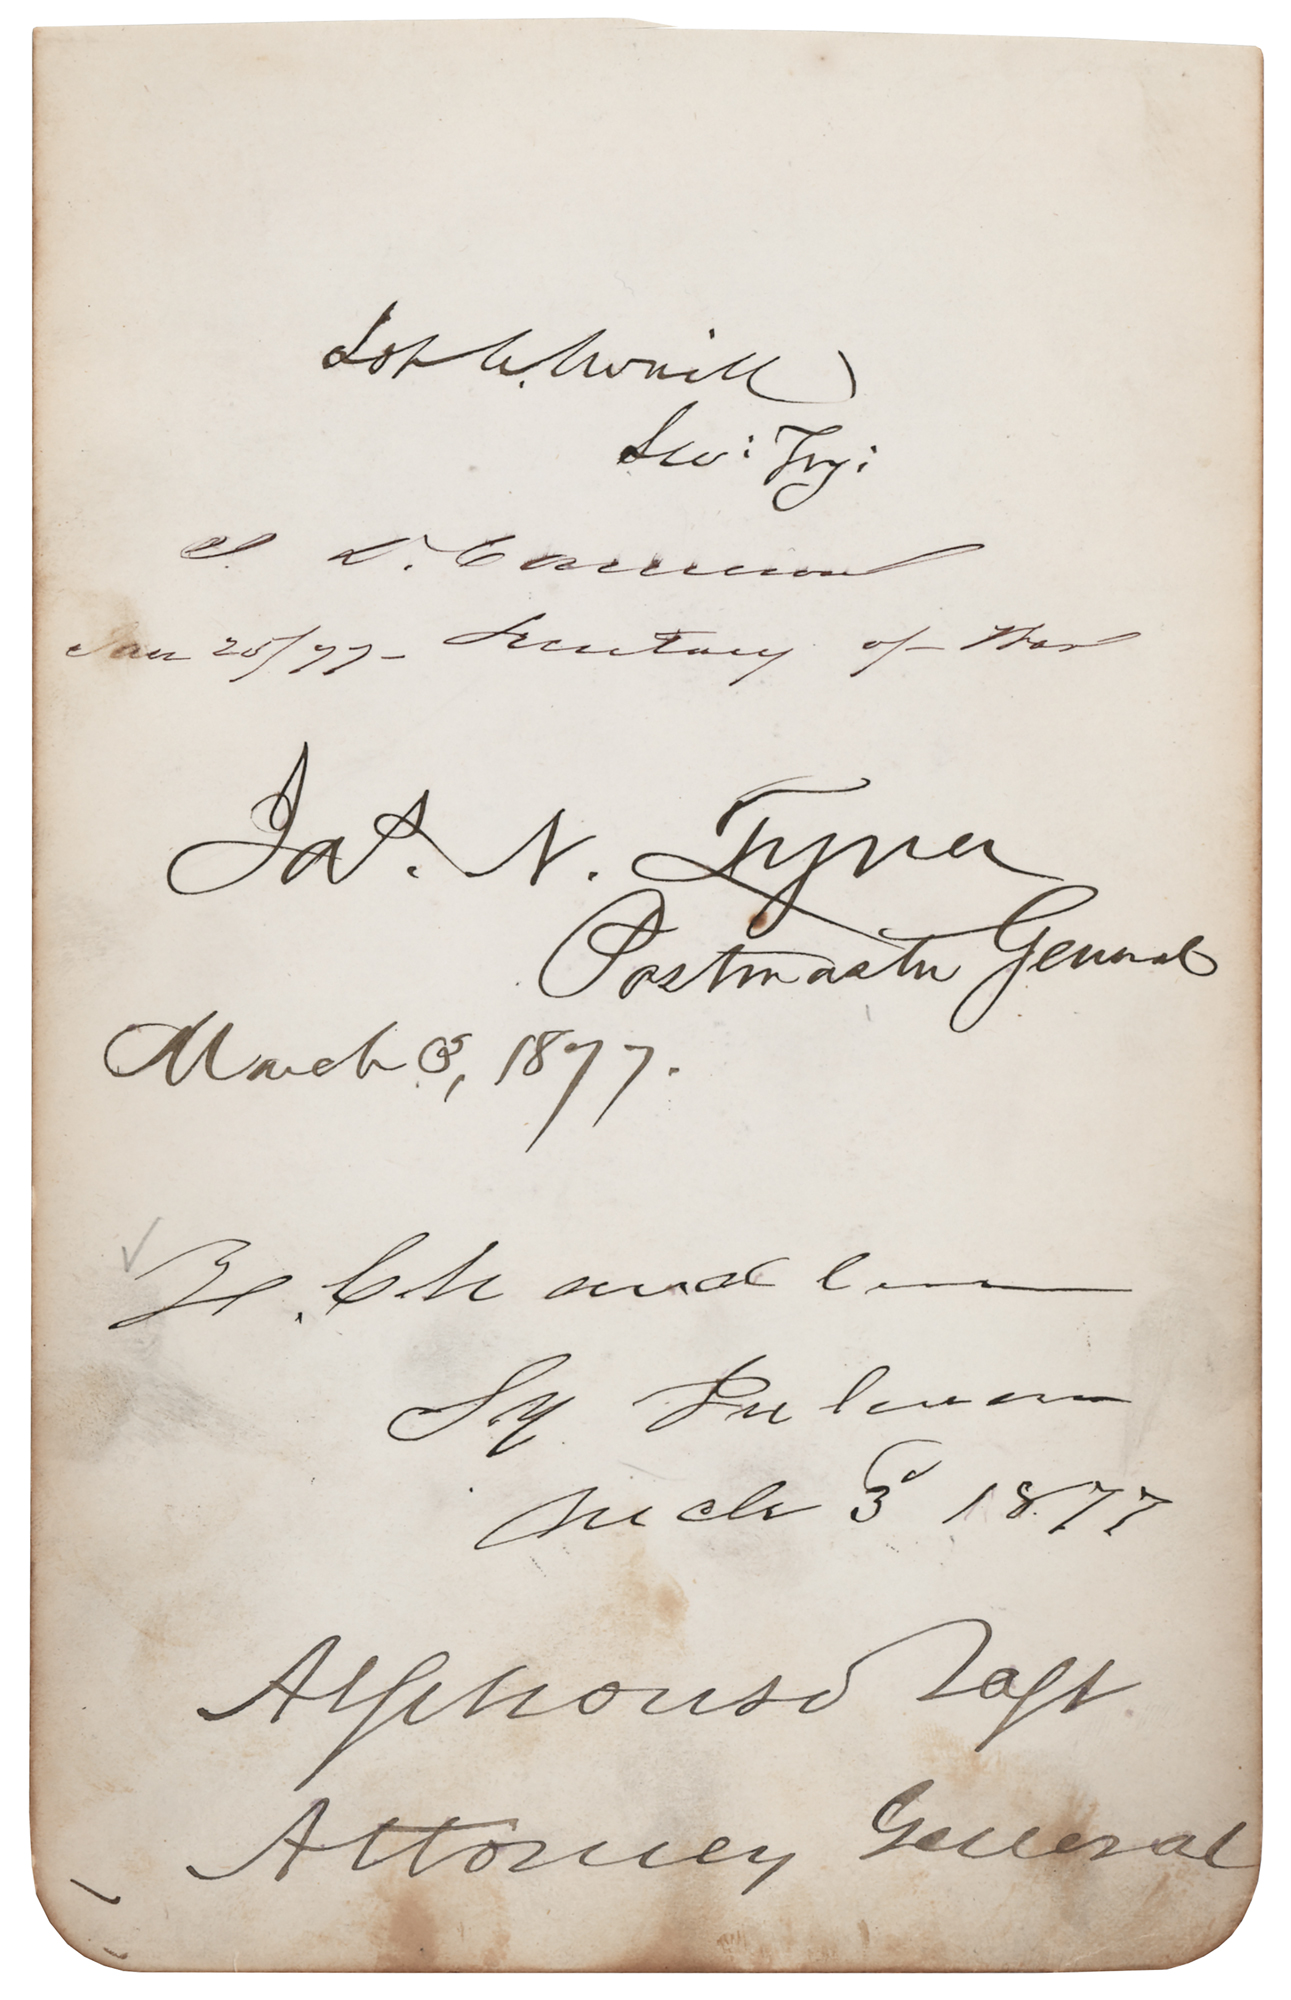 Lot M. Morrill
Sec: Try:
J. D. Cameron
Jan 25/77 - Secretary of War
Jas. N. Tyner
Postmaster General
March 3, 1877.
Z. Chandler
Sy Interior
Mch 3d 1877
Alphonso Taft
Attorney General